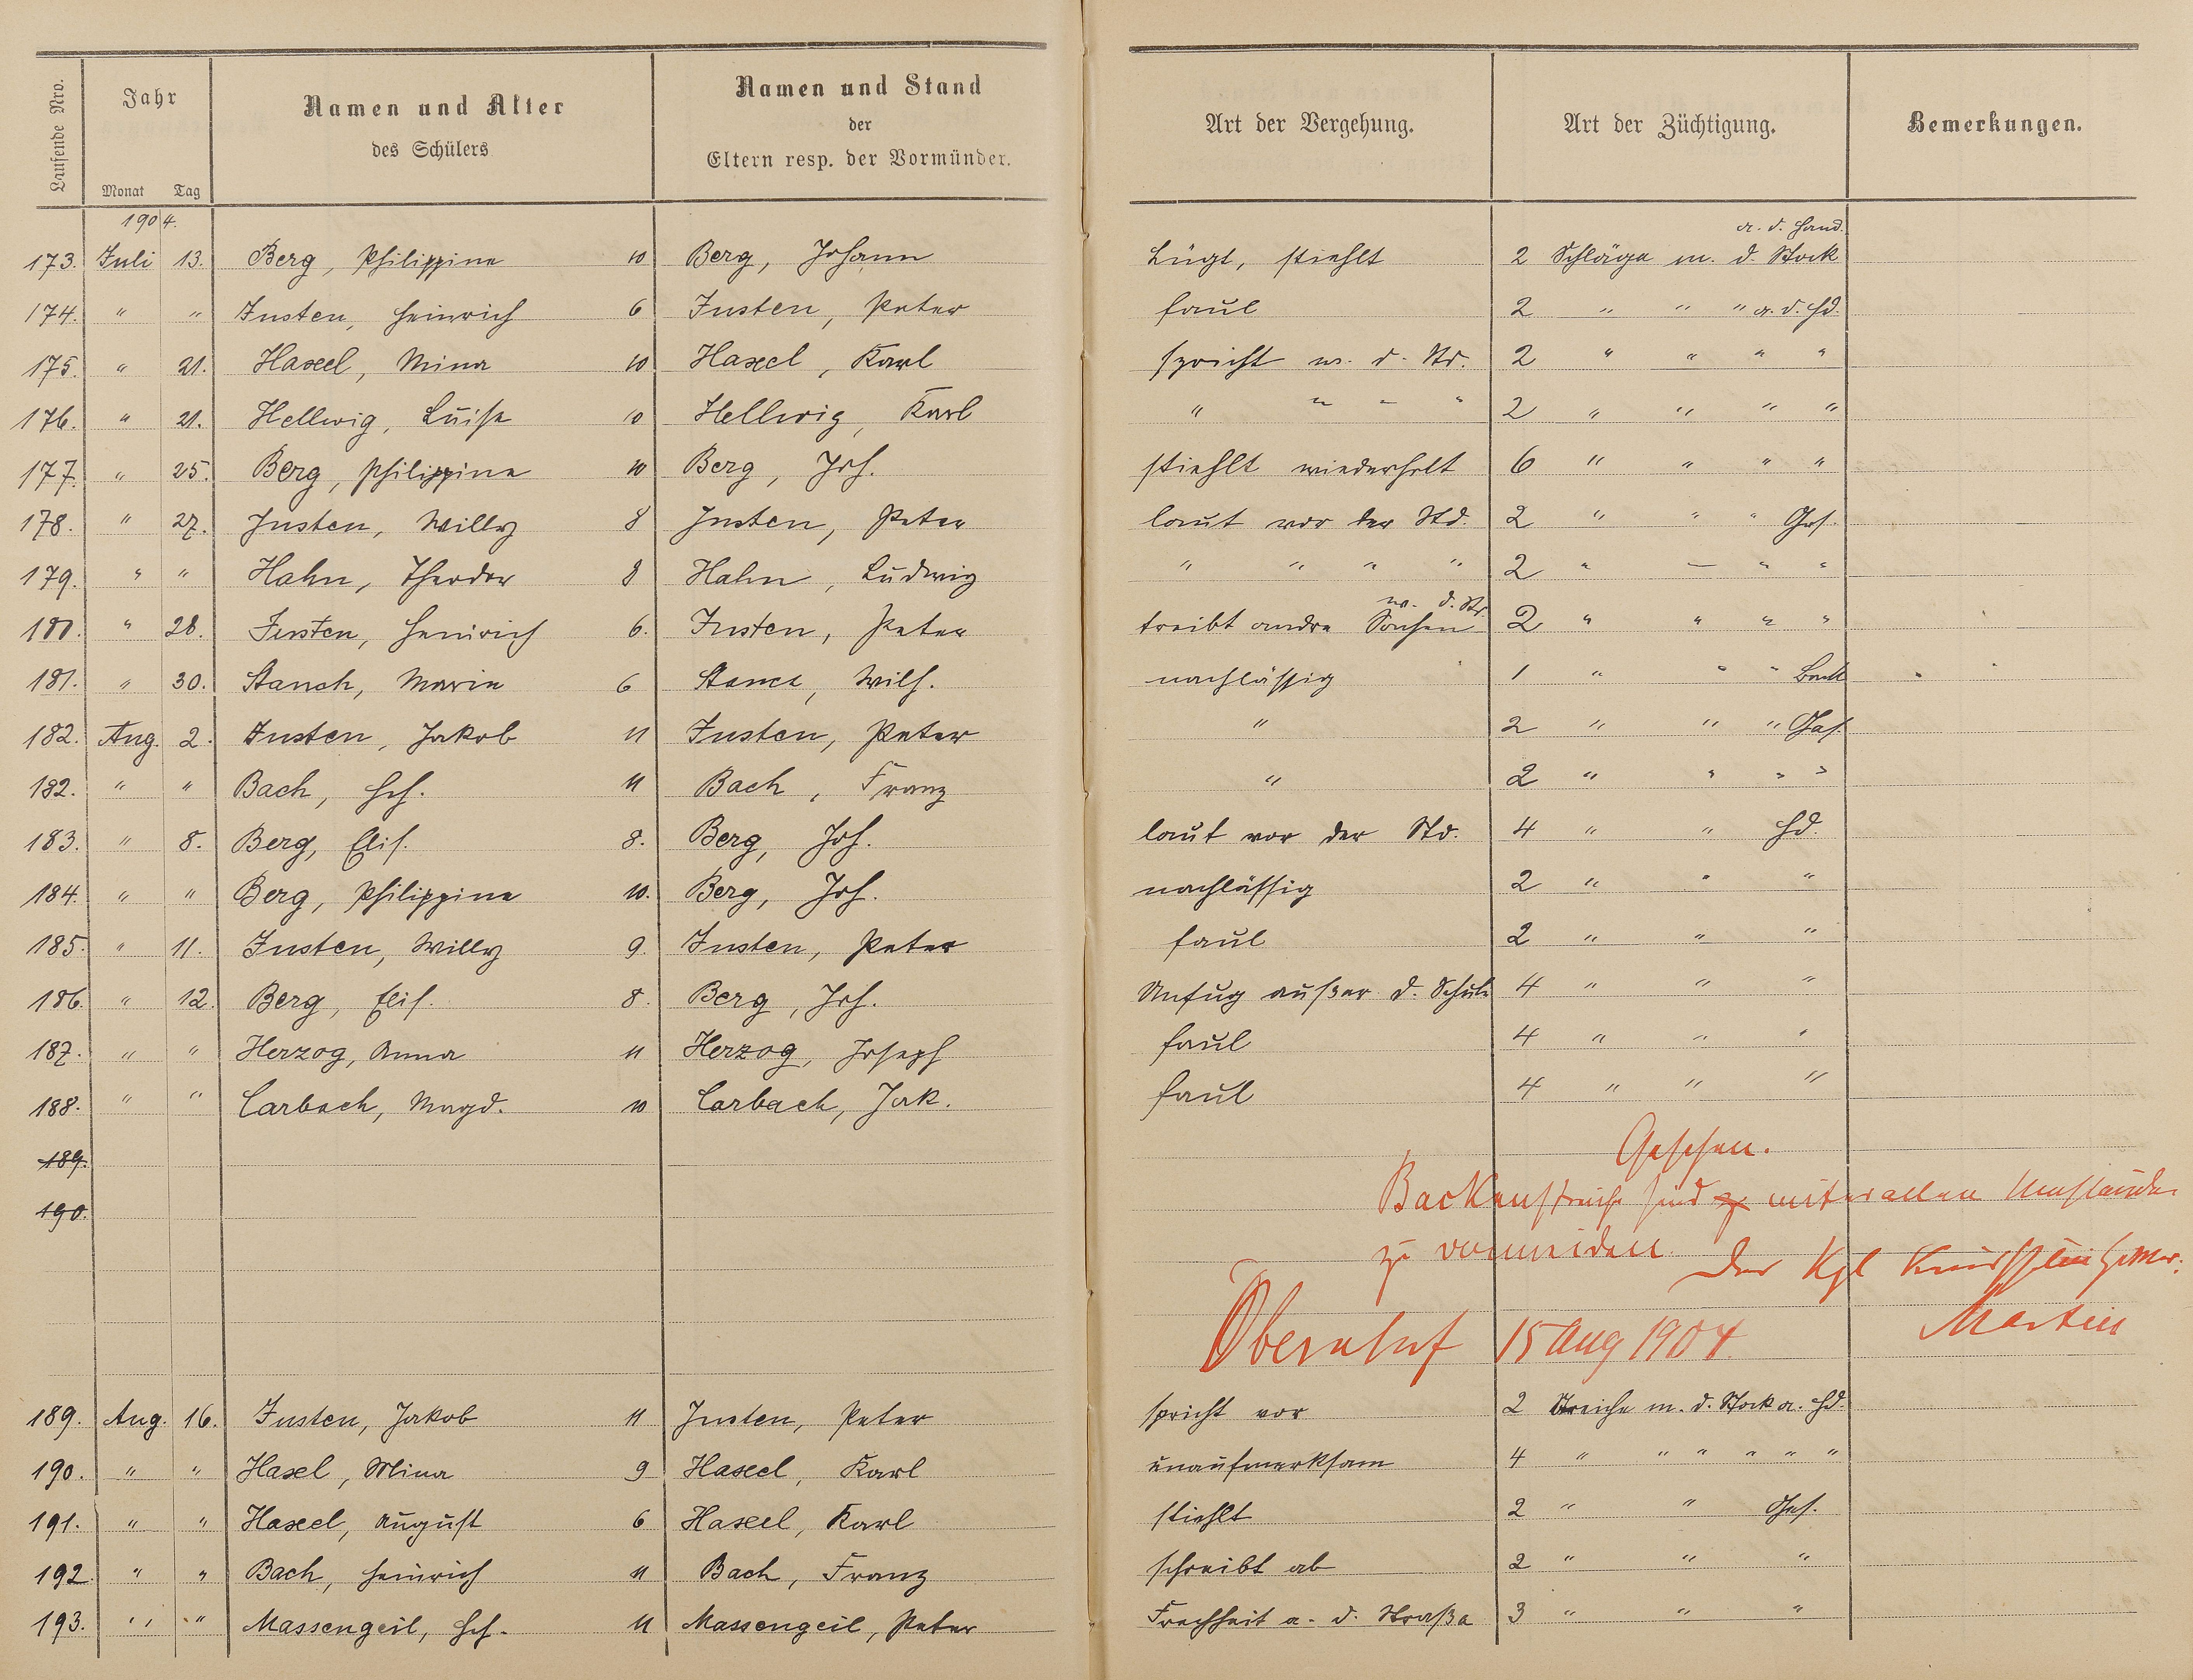 Laufende Nro.
Jahr
Monat Tag
Namen und Alter
des Schülers
Namen und Stand
der
Eltern resp. der Vormünder.
Art der Vergehung.
Art der Züchtigung.
Bemerkungen.
1904.
a. d. Hand.
173. Juli 13. Berg, Philippine 10 Berg, Johann Lügt, stiehlt 2 Schläge m. d. Stock
174. " " Justen, Heinrich 6 Justen, Peter faul 2 " " " a. d. Hd.
175. " 21. Haxel, Mina 10 Haxel, Karl spricht w. d. Std. 2 " " " "
176. " 21. Hellwig, Luise 10 Hellwig, Karl " " " " 2 " " " "
177. " 25. Berg, Philippine 10 Berg, Joh. stiehlt wiederholt 6 " " " "
178. " 27. Justen, Willy 8 Justen, Peter laut vor der Std. 2 " " " Ges.
179. " " Hahn, Theodor 8 Hahn, Ludwig " " " " 2 " " " "
w. d. Std.
180. " 28. Justen, Heinrich 6. Justen, Peter treibt andre Sachen 2 " " " "
181. " 30. Stanch, Marie 6 Wilh. nachlässig 1 " " "
182. Aug. 2. Justen, Jakob 11 Justen, Peter " 2 " " " Ges.
182. " " Bach, Hch. 11 Bach, Franz " 2 " " " "
183. " 8. Berg, Elis. 8. Berg, Joh. laut vor der Std. 4 " " Hd.
184. " " Berg, Philippine 10. Berg, Joh. nachlässig 2 " " "
185. " 11. Justen, Willy 9. Justen, Peter faul 2 " " "
186. " 12. Berg, Elis. 8. Berg, Joh. Unfug außer d. Schule 4 " " "
187. " " Herzog, Anna 11 Herzog, Joseph faul 4 " " "
188. " " Carbach, Magd. 10 Carbach, Jak. faul 4 " " "
189.
Gesehen.
190.
Backenstreiche sind unter allen Umständen
zu vermeiden.
Der Kgl
Obernhof 15 Aug 1904.
Martin
189. Aug. 16. Justen, Jakob 11 Justen, Peter spricht vor 2 Streiche m. d. Stock a. Hd.
190. " " Haxel, Mina 9 Haxel, Karl unaufmerksam 4 " " " " " "
191. " " Haxel, August 6 Haxel, Karl stiehlt 2 " " Ges.
192. " " Bach, Heinrich 11 Bach, Franz schreibt ab 2 " " "
193. " " Massengeil, Hch. 11 Massengeil, Peter Frechheit a. d. Straße 3 " " "